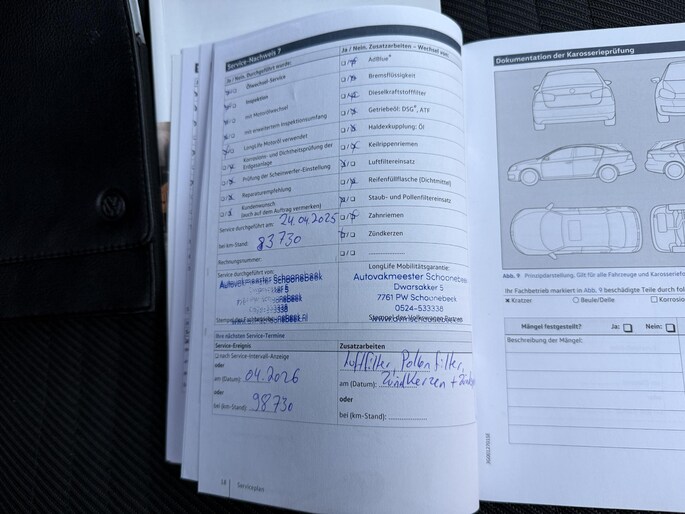 Service-Nachweis 7
Ja / Nein, Durchgeführt wurde:
Ölwechsel-Service
Inspektion
mit Motorölwechsel
mit erweitertem Inspektionsumfang
LongLife Motoröl verwendet
Korrosions- und Dichtheitsprüfung der
Erdgasanlage
Prüfung der Scheinwerfer-Einstellung
Reparaturempfehlung
Kundenwunsch
(auch auf dem Auftrag vermerken)
Service durchgeführt am: 24.04.2025
bei km-Stand: 83730
Rechnungsnummer:
Service durchgeführt von:
Autovakmeester Schoonebeek
Ja / Nein, Zusatzarbeiten - Wechsel von:
AdBlue®
Bremsflüssigkeit
Dieselkraftstofffilter
Getriebeöl: DSG®, ATF
Haldexkupplung: Öl
Keilrippenriemen
Luftfiltereinsatz
Reifenfüllflasche (Dichtmittel)
Staub- und Pollenfiltereinsatz
Zahnriemen
Zündkerzen
LongLife Mobilitätsgarantie:
Autovakmeester Schoonebeek
Dwarsakker 5
7761 PW Schoonebeek
0524-533338
Ihre nächsten Service-Termine
Service-Ereignis
nach Service-Intervall-Anzeige
oder
am (Datum): 04.2026
oder
bei (km-Stand): 98730
Zusatzarbeiten
Luftfilter, Pollenfilter,
am (Datum): Zündkerzen +
oder
bei (km-Stand):
18 Serviceplan
Dokumentation der Karosserieprüfung
Abb. 9 Prinzipdarstellung. Gilt für alle Fahrzeuge und
Ihr Fachbetrieb markiert in Abb. 9 beschädigte Teile durch
× Kratzer ○ Beule/Delle
Mängel festgestellt? Ja: Nein:
Beschreibung der Mängel: